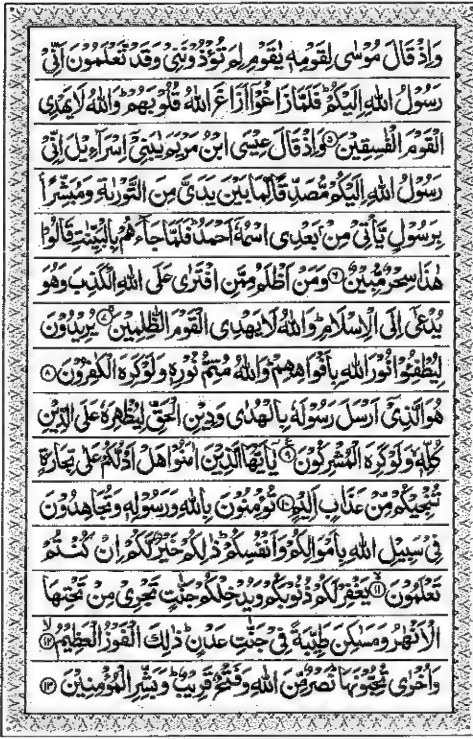 وَاِذْ قَالَ مُوْسٰى لِقَوْمِهٖ يٰقَوْمِ لِمَ تُؤْذُوْنَنِيْ وَقَدْ تَّعْلَمُوْنَ اَنِّيْ
رَسُوْلُ اللّٰهِ اِلَيْكُمْ ؕ فَلَمَّا زَاغُوْۤا اَزَاغَ اللّٰهُ قُلُوْبَهُمْ ؕ وَاللّٰهُ لَا يَهْدِى
الْقَوْمَ الْفٰسِقِيْنَ ۵ وَاِذْ قَالَ عِيْسَى ابْنُ مَرْيَمَ يٰبَنِيْۤ اِسْرَآءِيْلَ اِنِّيْ
رَسُوْلُ اللّٰهِ اِلَيْكُمْ مُّصَدِّقًا لِّمَا بَيْنَ يَدَيَّ مِنَ التَّوْرٰىةِ وَمُبَشِّرًۢا
بِرَسُوْلٍ يَّاْتِيْ مِنْۢ بَعْدِى اسْمُهٗۤ اَحْمَدُ ؕ فَلَمَّا جَآءَهُمْ بِالْبَيِّنٰتِ قَالُوْا
هٰذَا سِحْرٌ مُّبِيْنٌ ۶ وَمَنْ اَظْلَمُ مِمَّنِ افْتَرٰى عَلَى اللّٰهِ الْكَذِبَ وَهُوَ
يُدْعٰۤى اِلَى الْاِسْلَامِ ؕ وَاللّٰهُ لَا يَهْدِى الْقَوْمَ الظّٰلِمِيْنَ ۷ يُرِيْدُوْنَ
لِيُطْفِـُٔوْا نُوْرَ اللّٰهِ بِاَفْوَاهِهِمْ ؕ وَاللّٰهُ مُتِمُّ نُوْرِهٖ وَلَوْ كَرِهَ الْكٰفِرُوْنَ ۸
هُوَ الَّذِيْۤ اَرْسَلَ رَسُوْلَهٗ بِالْهُدٰى وَدِيْنِ الْحَقِّ لِيُظْهِرَهٗ عَلَى الدِّيْنِ
كُلِّهٖ ۙ وَلَوْ كَرِهَ الْمُشْرِكُوْنَ ۹ يٰۤاَيُّهَا الَّذِيْنَ اٰمَنُوْا هَلْ اَدُلُّكُمْ عَلٰى تِجَارَةٍ
تُنْجِيْكُمْ مِّنْ عَذَابٍ اَلِيْمٍ ۱۰ تُؤْمِنُوْنَ بِاللّٰهِ وَرَسُوْلِهٖ وَتُجَاهِدُوْنَ
فِيْ سَبِيْلِ اللّٰهِ بِاَمْوَالِكُمْ وَاَنْفُسِكُمْ ؕ ذٰلِكُمْ خَيْرٌ لَّكُمْ اِنْ كُنْتُمْ
تَعْلَمُوْنَ ۱۱ يَغْفِرْ لَكُمْ ذُنُوْبَكُمْ وَيُدْخِلْكُمْ جَنّٰتٍ تَجْرِيْ مِنْ تَحْتِهَا
الْاَنْهٰرُ وَمَسٰكِنَ طَيِّبَةً فِيْ جَنّٰتِ عَدْنٍ ؕ ذٰلِكَ الْفَوْزُ الْعَظِيْمُ ۱۲
وَاُخْرٰى تُحِبُّوْنَهَا ؕ نَصْرٌ مِّنَ اللّٰهِ وَفَتْحٌ قَرِيْبٌ ؕ وَبَشِّرِ الْمُؤْمِنِيْنَ ۱۳